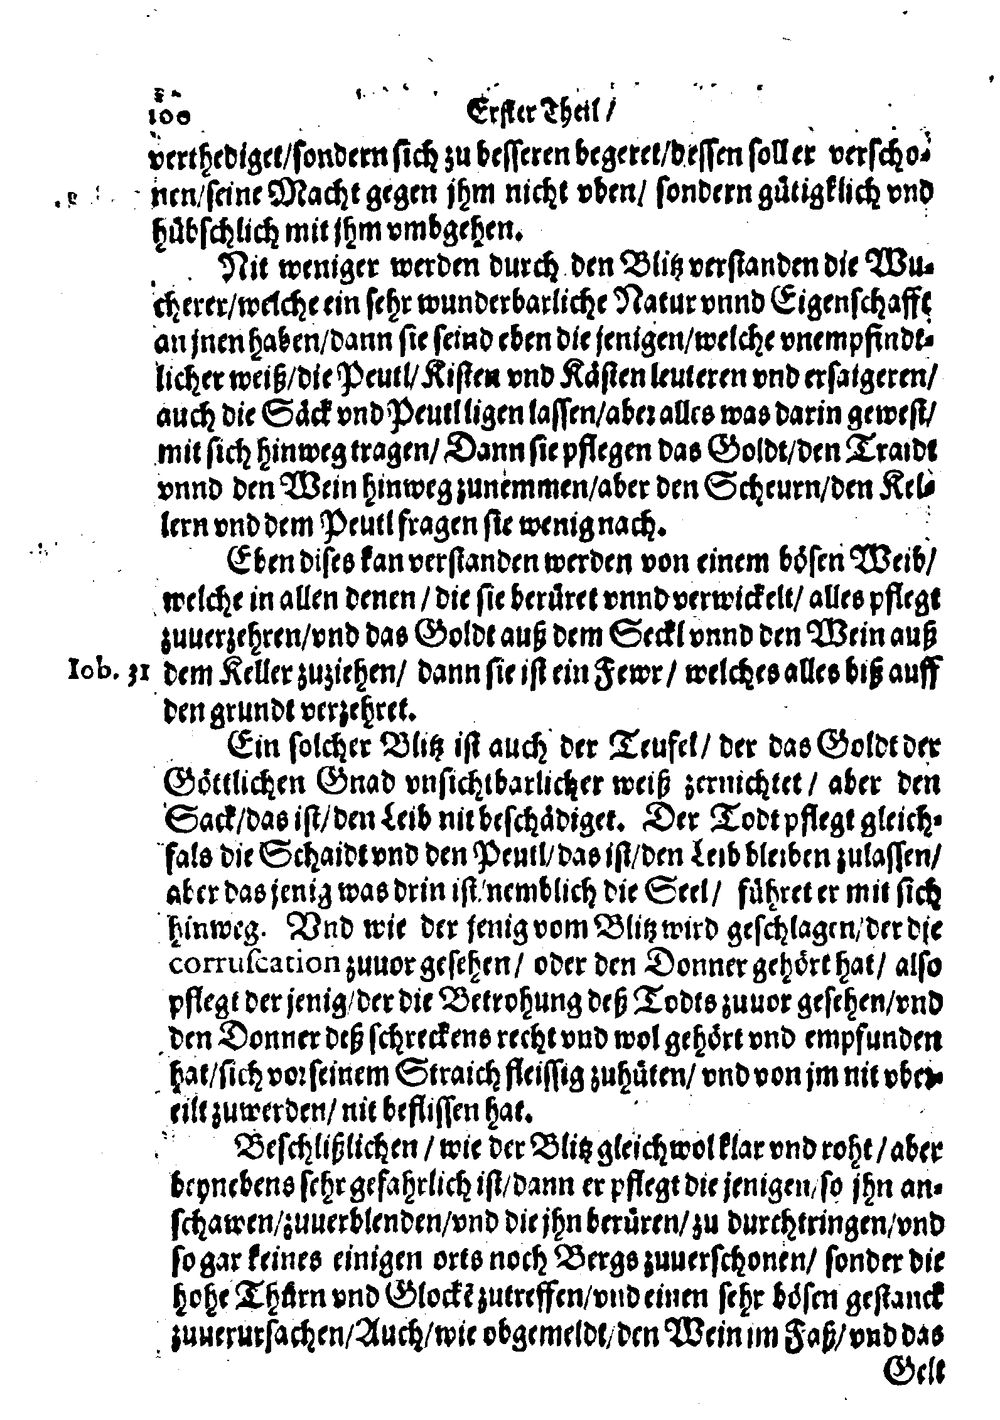 100 Erster Theil /
verthediget/sondern sich zu besseren begeret/dessen soll er verscho-
nen/seine Macht gegen jhm nicht vben/ sondern gütigklich vnd
hübschlich mit jhm vmbgehen.
Nit weniger werden durch den Blitz verstanden die Wu-
cherer/welche ein sehr wunderbarliche Natur vnnd Eigenschafft
an jnen haben/dann sie seind eben die jenigen/welche vnempfindt-
licher weiß/die Peutl/Kisten vnd Kästen leuteren vnd ersaigeren/
auch die Säck vnd Peutl ligen lassen/aber alles was darin gewest/
mit sich hinweg tragen/ Dann sie pflegen das Goldt/den Traidt
vnnd den Wein hinweg zunemmen/aber den Scheurn/den Kel-
lern vnd dem Peutl fragen sie wenig nach.
Eben dises kan verstanden werden von einem bösen Weib/
welche in allen denen / die sie berüret vnnd verwickelt/ alles pflegt
zuuerzehren/vnd das Goldt auß dem Seckl vnnd den Wein auß
Iob. 31 dem Keller zuziehen/ dann sie ist ein Fewr/ welches alles biß auff
den grundt verzehret.
Ein solcher Blitz ist auch der Teufel/ der das Goldt der
Göttlichen Gnad vnsichtbarlicher weiß zernichtet/ aber den
Sack/das ist/den Leib nit beschädiget. Der Todt pflegt gleich-
fals die Schaidt vnd den Peutl/das ist/den Leib bleiben zulassen/
aber das jenig was drin ist/nemblich die Seel/ führet er mit sich
hinweg. Vnd wie der jenig vom Blitz wird geschlagen/der die
corruscation zuuor gesehen/ oder den Donner gehört hat/ also
pflegt der jenig/der die Betrohung deß Todts zuuor gesehen/vnd
den Donner deß schreckens recht vnd wol gehört vnd empfunden
hat/sich vor seinem Straich fleissig zuhüten/ vnd von jm nit vber-
eilt zuwerden/ nit beflissen hat.
Beschlißlichen / wie der Blitz gleichwol klar vnd roht/ aber
beynebens sehr gefahrlich ist/dann er pflegt die jenigen/so jhn an-
schawen/zuuerblenden/vnd die jhn berüren/zu durchtringen/vnd
so gar keines einigen orts noch Bergs zuuerschonen/ sonder die
hohe Thürn vnd Glockē zutreffen/vnd einen sehr bösen gestanck
zuuerursachen/Auch/wie obgemeldt/den Wein im Faß/vnd das
Gelt